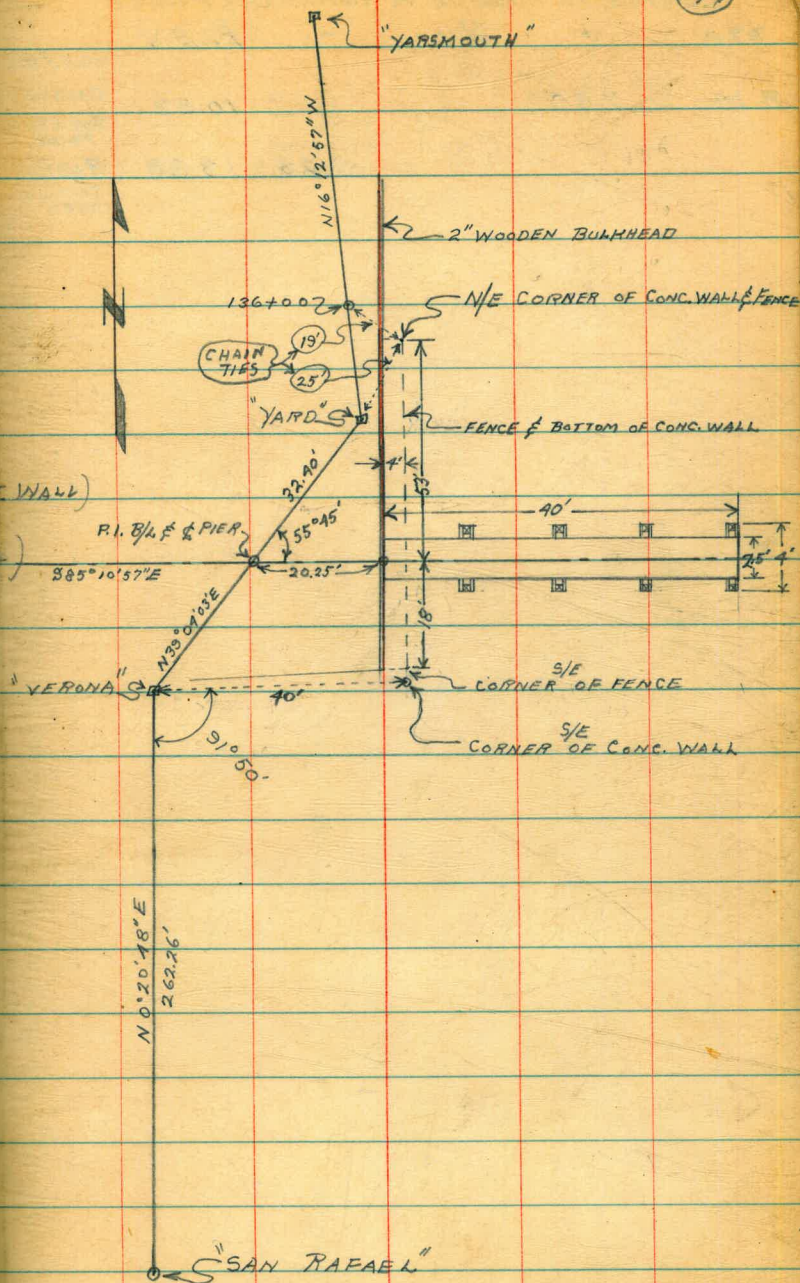 "YARSMOUTH"
N16°12'57"W
2" WOODEN BULKHEAD
136+00?
N/E CORNER OF CONC. WALL & FENCE
19'
CHAIN
TIES
25'
"YARD"
FENCE & BOTTOM OF CONC. WALL
4'
53'
32.40'
WALL)
55°45'
40'
P.I. B/L & ℄ PIER
S85°10'57"E
20.25'
2.5'
4'
18'
N39°04'03"E
"VERONA"
40'
S/E
CORNER OF FENCE
S/E
CORNER OF CONC. WALL
N 0°20'48"E
262.26'
"SAN RAFAEL"